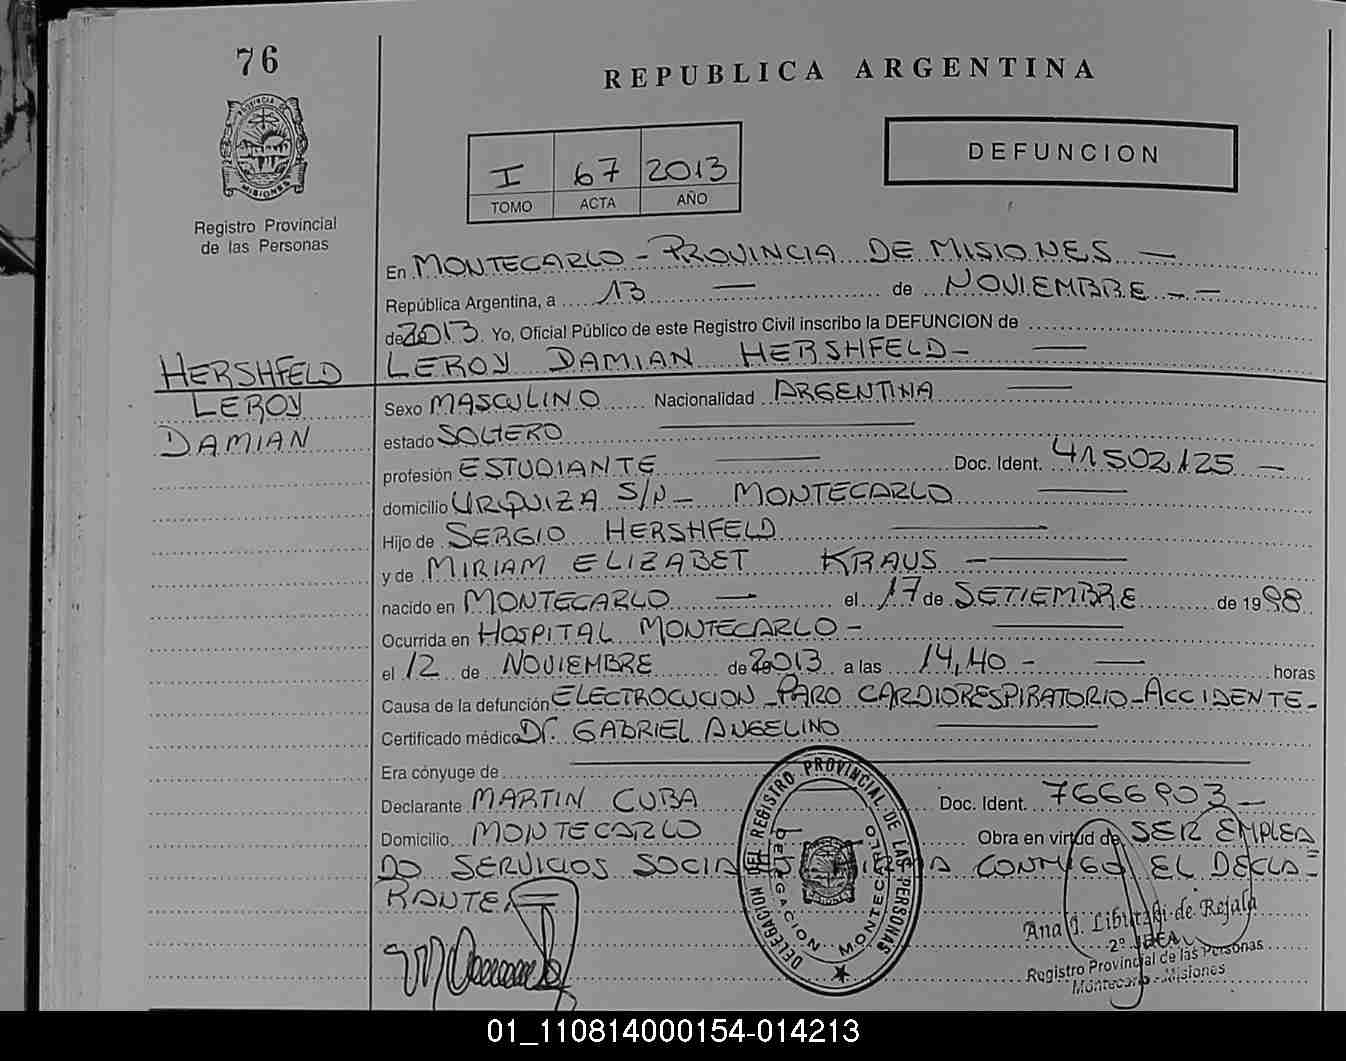 76
REPUBLICA ARGENTINA
PROVINCIA DE
MISIONES
Registro Provincial
de las Personas
I 67 2013
TOMO ACTA AÑO
DEFUNCION
En MONTECARLO - PROVINCIA DE MISIONES —
República Argentina, a 13 — de NOVIEMBRE - —
de 2013 Yo, Oficial Público de este Registro Civil inscribo la DEFUNCION de
LEROY DAMIAN HERSHFELD - —
HERSHFELD
LEROY
DAMIAN
Sexo MASCULINO Nacionalidad ARGENTINA —
estado SOLTERO —
profesión ESTUDIANTE — Doc. Ident. 41502.125 —
domicilio URQUIZA S/N - MONTECARLO —
Hijo de SERGIO HERSHFELD —
y de MIRIAM ELIZABET KRAUS —
nacido en MONTECARLO — el 17 de SETIEMBRE de 1998
Ocurrida en HOSPITAL MONTECARLO - —
el 12 de NOVIEMBRE de 2013 a las 14,40 - — horas
Causa de la defunción ELECTROCUCION - PARO CARDIORESPIRATORIO - ACCIDENTE -
Certificado médico Dr. GABRIEL ANGELINO —
Era cónyuge de —
Declarante MARTIN CUBA — Doc. Ident. 7666903 —
Domicilio MONTECARLO Obra en virtud de SER EMPLEA
DO SERVICIOS SOCIALES FIRMA CONMIGO EL DECLA =
RANTE
DELEGACION DEL REGISTRO PROVINCIAL DE LAS PERSONAS
DELEGACION MONTECARLO
Ana I. de Rejala
2º JEFA
Registro Provincial de las Personas
Montecarlo - Misiones
01_110814000154-014213